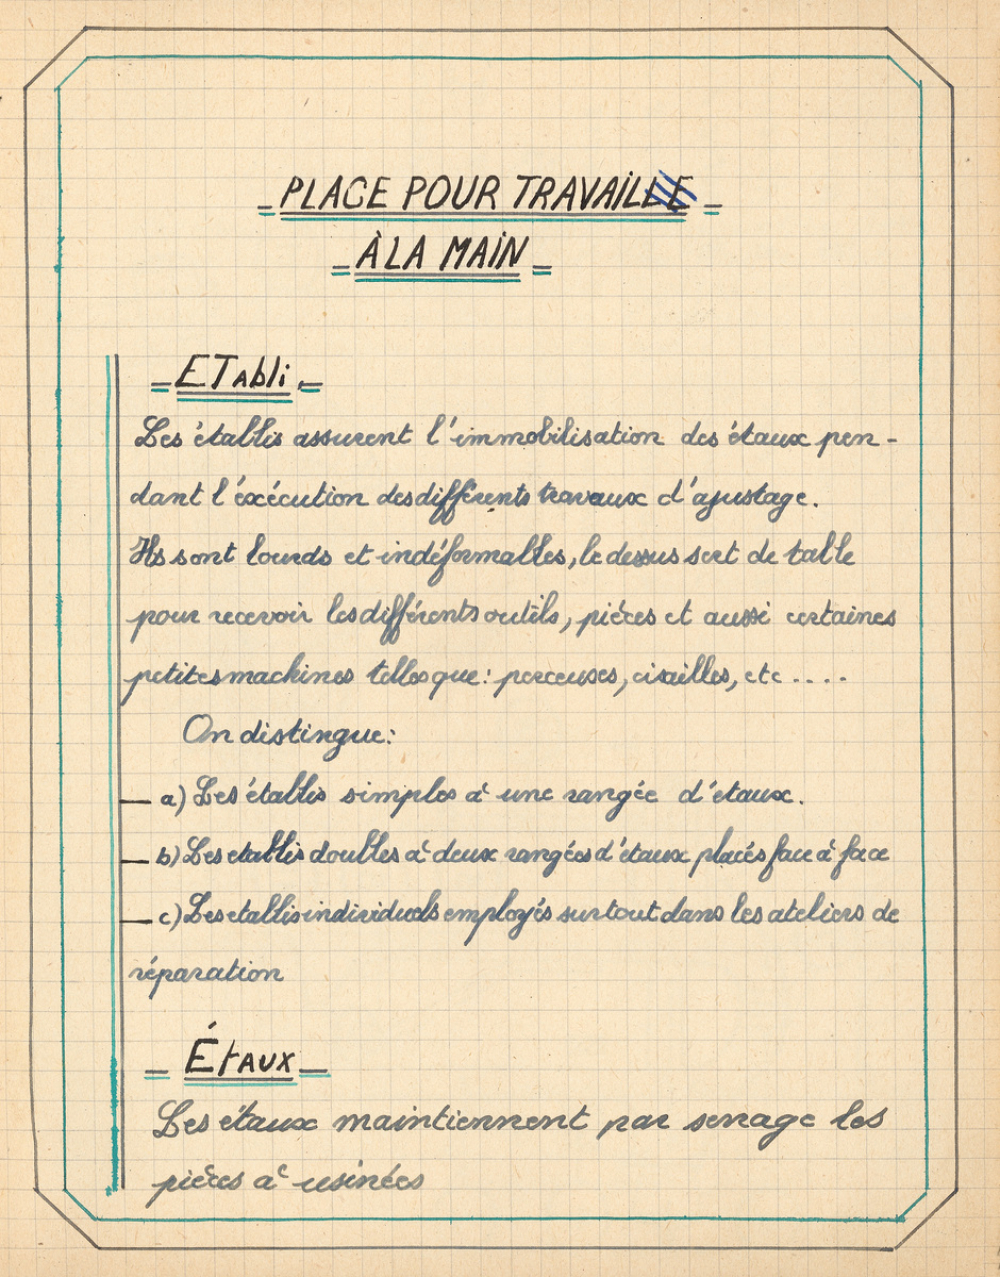 _ PLACE POUR TRAVAIL _
= À LA MAIN =
= ETabli =
Les établis assurent l'immobilisation des étaux pen-
dant l'éxécution des différents travaux d'ajustage.
Ils sont lourds et indéformables, le dessus sert de table
pour recevoir les différents outils, piéces et aussi certaines
petites machines telles que: perceuses, cisailles, etc ....
On distingue:
_ a) Les établis simples à une rangée d'étaux.
_ b) Les etablis doubles à deux rangées d'étaux placés face à face
_ c) Les etablis individuels employés surtout dans les ateliers de
réparation
_ ÉTAUX _
Les étaux maintiennent par serrage les
pièces à usinées